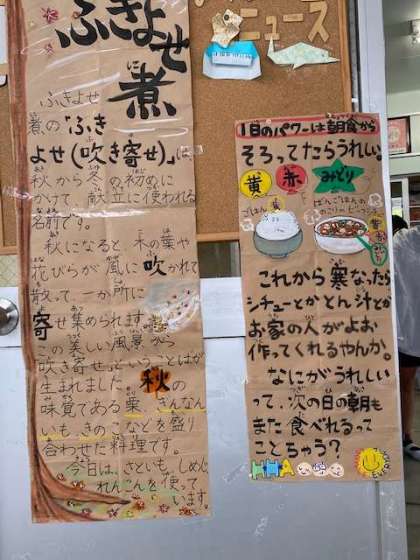 ニュース
ふきよせ
煮
に
ふきよせ
煮の「ふき
よせ(吹き寄せ)」は
秋から冬の初めに
かけて、献立に使われる
名前です。
秋になると、木の葉や
花びらが風に吹かれて
散って、一か所に
寄せ集められます。
この美しい風景から
吹き寄せということばが
生まれました。秋の
味覚である栗、ぎんなん、
いも、きのこなどを盛り
合わせた料理です。
今日は、さといも、しめじ、
れんこんを使って
います。
1日のパワーは朝食から
そろってたらうれしい。
黄 赤 みどり
ごはん 黄
ばんごはんの
のこりの
これから寒なったら
シチューとかとん汁とか
お家の人がよお
作ってくれるやんか。
なにがうれしい
って、次の日の朝も
また食べれるって
ことちゃう?